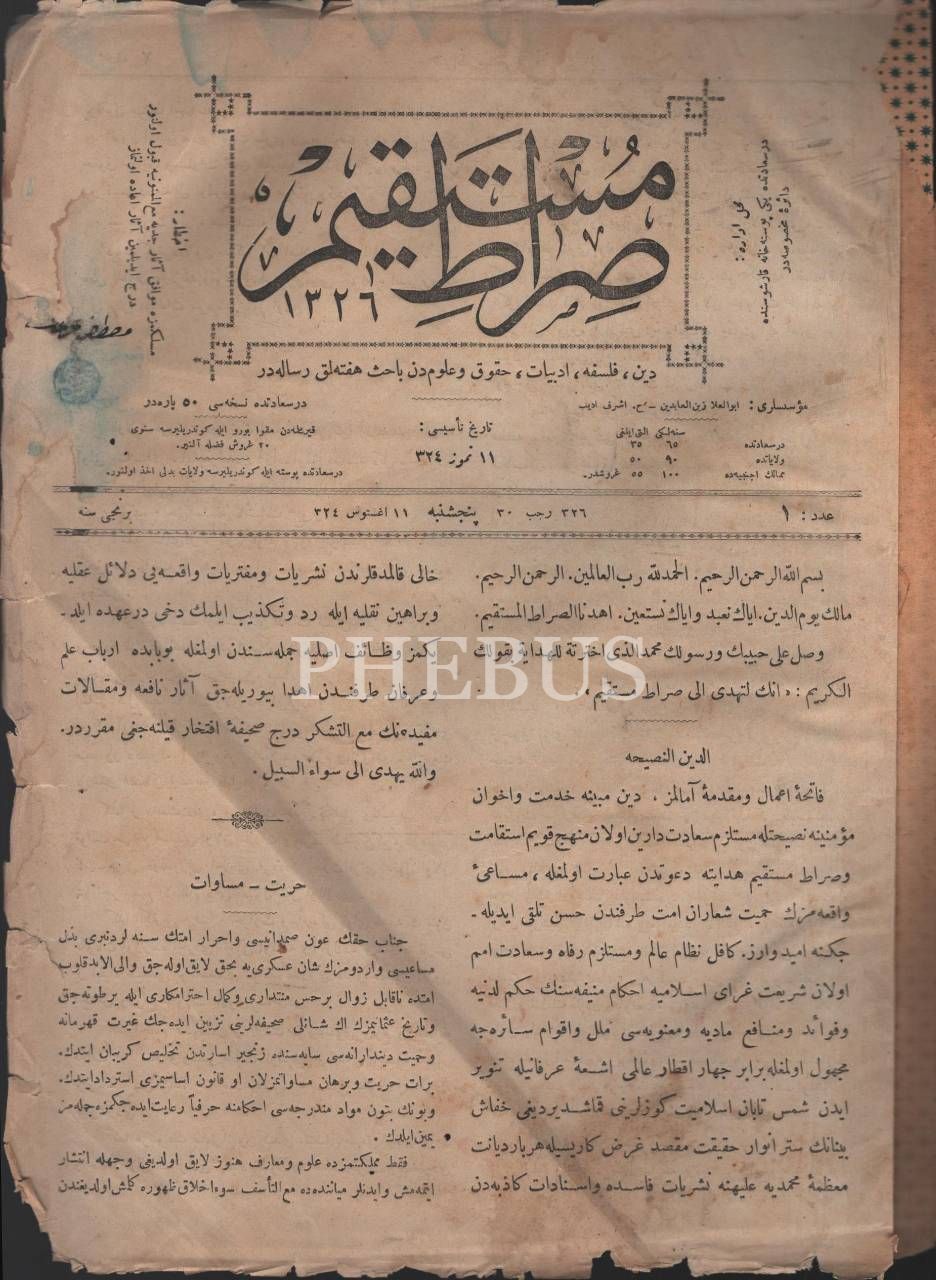 صراط مستقيم
١٣٢٦
محل اداره :
درسعادتده يكى پوسته خانه قارشوسنده
دائرهٔ مخصوصه در
اخطار :
مسلكمزه موافق آثار جديه مع الممنونيه قبول اولنور
درج ايديلمين آثار اعاده اولنماز
دين ، فلسفه ، ادبيات ، حقوق وعلومدن باحث هفته لق رساله در
مؤسسلرى : ابوالعلا زين العابدين ـ ح . اشرف اديب
سنه لكى التى آيلغى
درسعادتده ٦٥ ٣٥
ولاياتده ٩٠ ٥٠
ممالك اجنبيه ده ١٠٠ ٥٥ غروشدر .
تاريخ تأسيسى :
١١ تموز ٣٢٤
درسعادتده نسخه سى ٥٠ پاره در
قيرلمه دن مقوا بورو ايله كوندريليرسه سنوى
٢٠ غروش فضله آلنير .
درسعادتده پوسته ايله كوندريليرسه ولايات بدلى اخذ اولنور .
عدد : ١
٣٢٦ رجب ٣٠ پنجشنبه ١١ اغستوس ٣٢٤
برنجى سنه
بسم الله الرحمن الرحيم . الحمدلله رب العالمين . الرحمن الرحيم .
مالك يوم الدين . اياك نعبد واياك نستعين . اهدنا الصراط المستقيم .
وصل على حبيبك ورسولك محمد الذى اخترته للهداية بقولك
الكريم : « انك لتهدى الى صراط مستقيم » .
الدين النصيحه
فاتحهٔ اعمال ومقدمهٔ آمالمز ، دين مبينه خدمت واخوان
مؤمنينه نصيحتله مستلزم سعادت دارين اولان منهج قويم استقامت
وصراط مستقيم هدايته دعوتدن عبارت اولمغله ، مساعىٔ
واقعه مزك حميت شعاران امت طرفندن حسن تلقى ايديله ـ
جكنه اميدوارز . كافل نظام عالم ومستلزم رفاه وسعادت امم
اولان شريعت غراى اسلاميه احكام منيفه سنك حكم لدنيه
وفوائد ومنافع ماديه ومعنويه سى ملل واقوام سائره جه
مجهول اولمغله برابر چهار اقطار عالمى اشعهٔ عرفانيله تنوير
ايدن شمس تابان اسلاميت كوزلرينى قماشديرديغى خفاش
بينانك ستر انوار حقيقت مقصد غرض كاريسيله هر بار ديانت
معظمهٔ محمديه عليهنه نشريات فاسده واسنادات كاذبه دن
خالى قالمدقلرندن نشريات ومفتريات واقعه يى دلائل عقليه
وبراهين نقليه ايله رد وتكذيب ايلمك دخى درعهده ايلد ـ
يكمز وظائف اصليه جمله سندن اولمغله بوبابده ارباب علم
وعرفان طرفندن اهدا بيوريله جق آثار نافعه ومقالات
مفيده نك مع التشكر درج صحيفهٔ افتخار قيلنه جغى مقرردر .
والله يهدى الى سواء السبيل .
حريت ـ مساوات
جناب حقك عون صمدانيسى واحرار امتك سنه لردنبرى بذل
مساعيسى واردومزك شان عسكرى يه بحق لايق اوله جق والى الابد قلوب
امتده ناقابل زوال برحس منتدارى وكمال احترامكارى ايله يرطوته جق
وتاريخ عثمانيمزك اك شانلى صحيفه لرينى تزيين ايده جك غيرت قهرمانه
وحميت ديندارانه سى سايه سنده زنجير اسارتدن تخليص كريبان ايتدك .
برات حريت وبرهان مساواتمزلان او قانون اساسيمزى استرداد ايتدك .
وبونك بتون مواد مندرجه سى احكامنه حرفياً رعايت ايده جكمزه جمله مز
يمين ايلدك .
فقط مملكتمزده علوم ومعارف هنوز لايق اولديغى وجهله انتشار
ايتمه مش وايدنلر مياننده ده مع التأسف سوء اخلاق ظهوره كلمش اولديغندن
PHEBUS